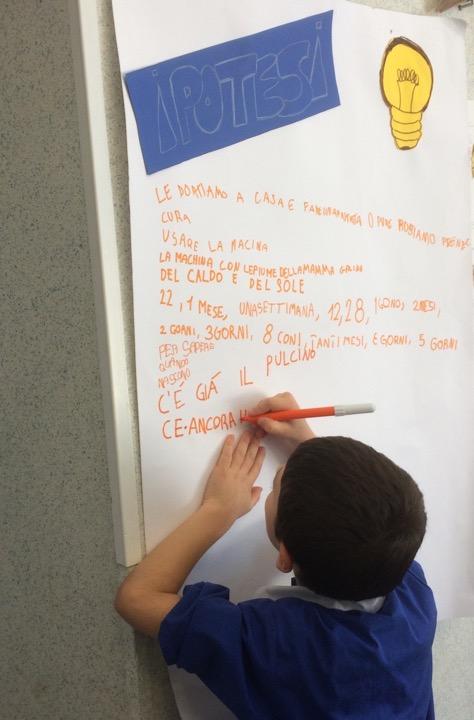 IPOTESI
LE PORTIAMO A CASA E O PURE POSSIAMO PRENDERE
CURA
USARE LA MACINA
LA MACHINA CON LEPIUME DELLA MAMMA GALINA
DEL CALDO E DEL SOLE
22, 1 MESE, UNASETTIMANA, 12,28, 1 GONO, 2 MESI,
2 GORNI, 3 GORNI, 8 CONI, TANTI MESI, 6 GORNI, 5 GORNI
PER SAPERE
QUANDO
NASCONO
C'É GIÁ IL PULCINO
CE·ANCORA